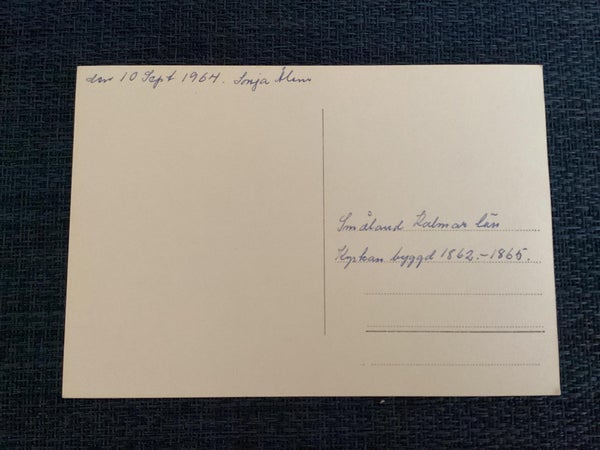 den 10 Sept 1964. Sonja
Småland Kalmar län
Kyrkan byggd 1862.-1865.